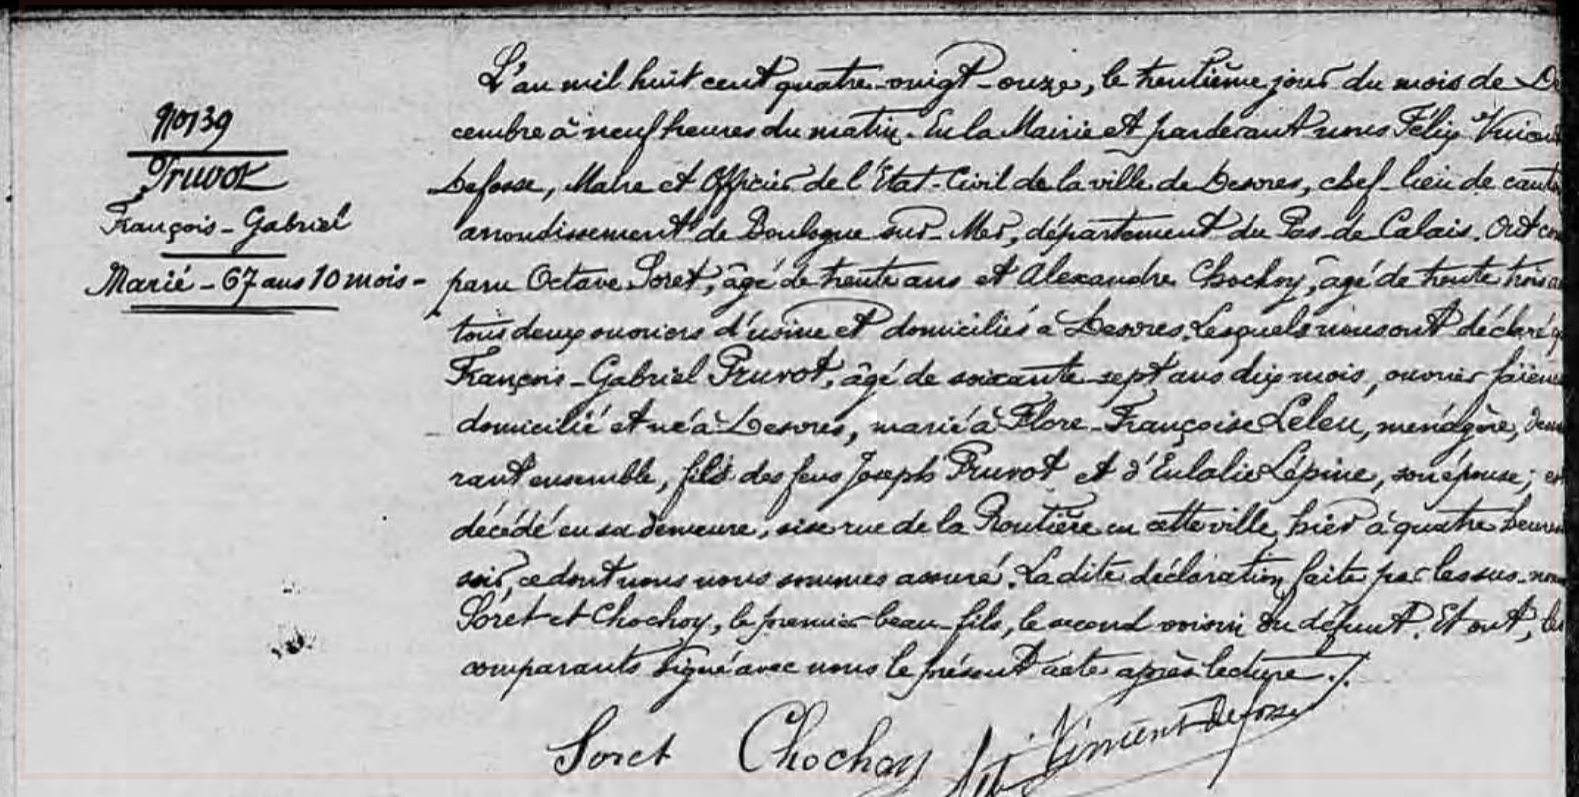 N° 139
Pruvot
François-Gabriel
Marié - 67 ans 10 mois -
L'an mil huit cent quatre-vingt-onze, le trentième jour du mois de Dé
cembre à neuf heures du matin. En la Mairie et pardevant nous Félix Vincent
Defosse, Maire et Officier de l'Etat-Civil de la ville de Desvres, chef-lieu de canton
arrondissement de Boulogne-sur-Mer, département du Pas-de-Calais. Ont com
paru Octave Soret, âgé de trente ans et Alexandre Chochoy, âgé de trente trois
tous deux ouvriers d'usine et domiciliés à Desvres. Lesquels nous ont déclaré
François-Gabriel Pruvot, âgé de soixante-sept ans dix mois, ouvrier
domicilié et né à Desvres, marié à Flore-Françoise Leleu, ménagère, demeu
rant ensemble, fils des feus Joseph Pruvot et d'Eulalie Lépine, son épouse; est
décédé en sa demeure, sise rue de la Routière en cette ville, hier à quatre heures
soir, ce dont nous nous sommes assuré. La dite déclaration faite par les sus-nom
Soret et Chochoy, le premier beau-fils, le second voisin du défunt. Et ont, les
comparants signé avec nous le présent acte après lecture ./.
Soret Chochoy Vincent Defosse